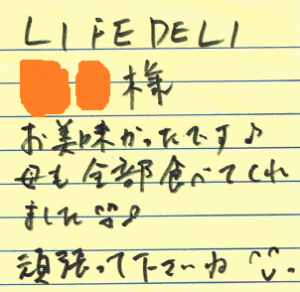 LIFE DELI
様
お美味かったです♪
母も全部食べてくれ
ました♪
頑張って下さいね